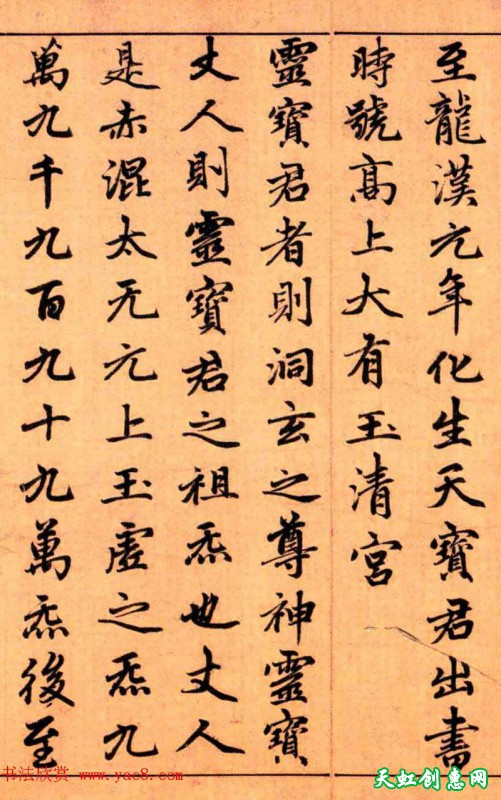 至龍漢元年化生天寶君出書
時號高上大有玉清宮
靈寶君者則洞玄之尊神靈寶
丈人則靈寶君之祖炁也丈人
是赤混太无元上玉虛之炁九
萬九千九百九十九萬炁後至
书法欣赏 www.yac8.com
天虹创惠网